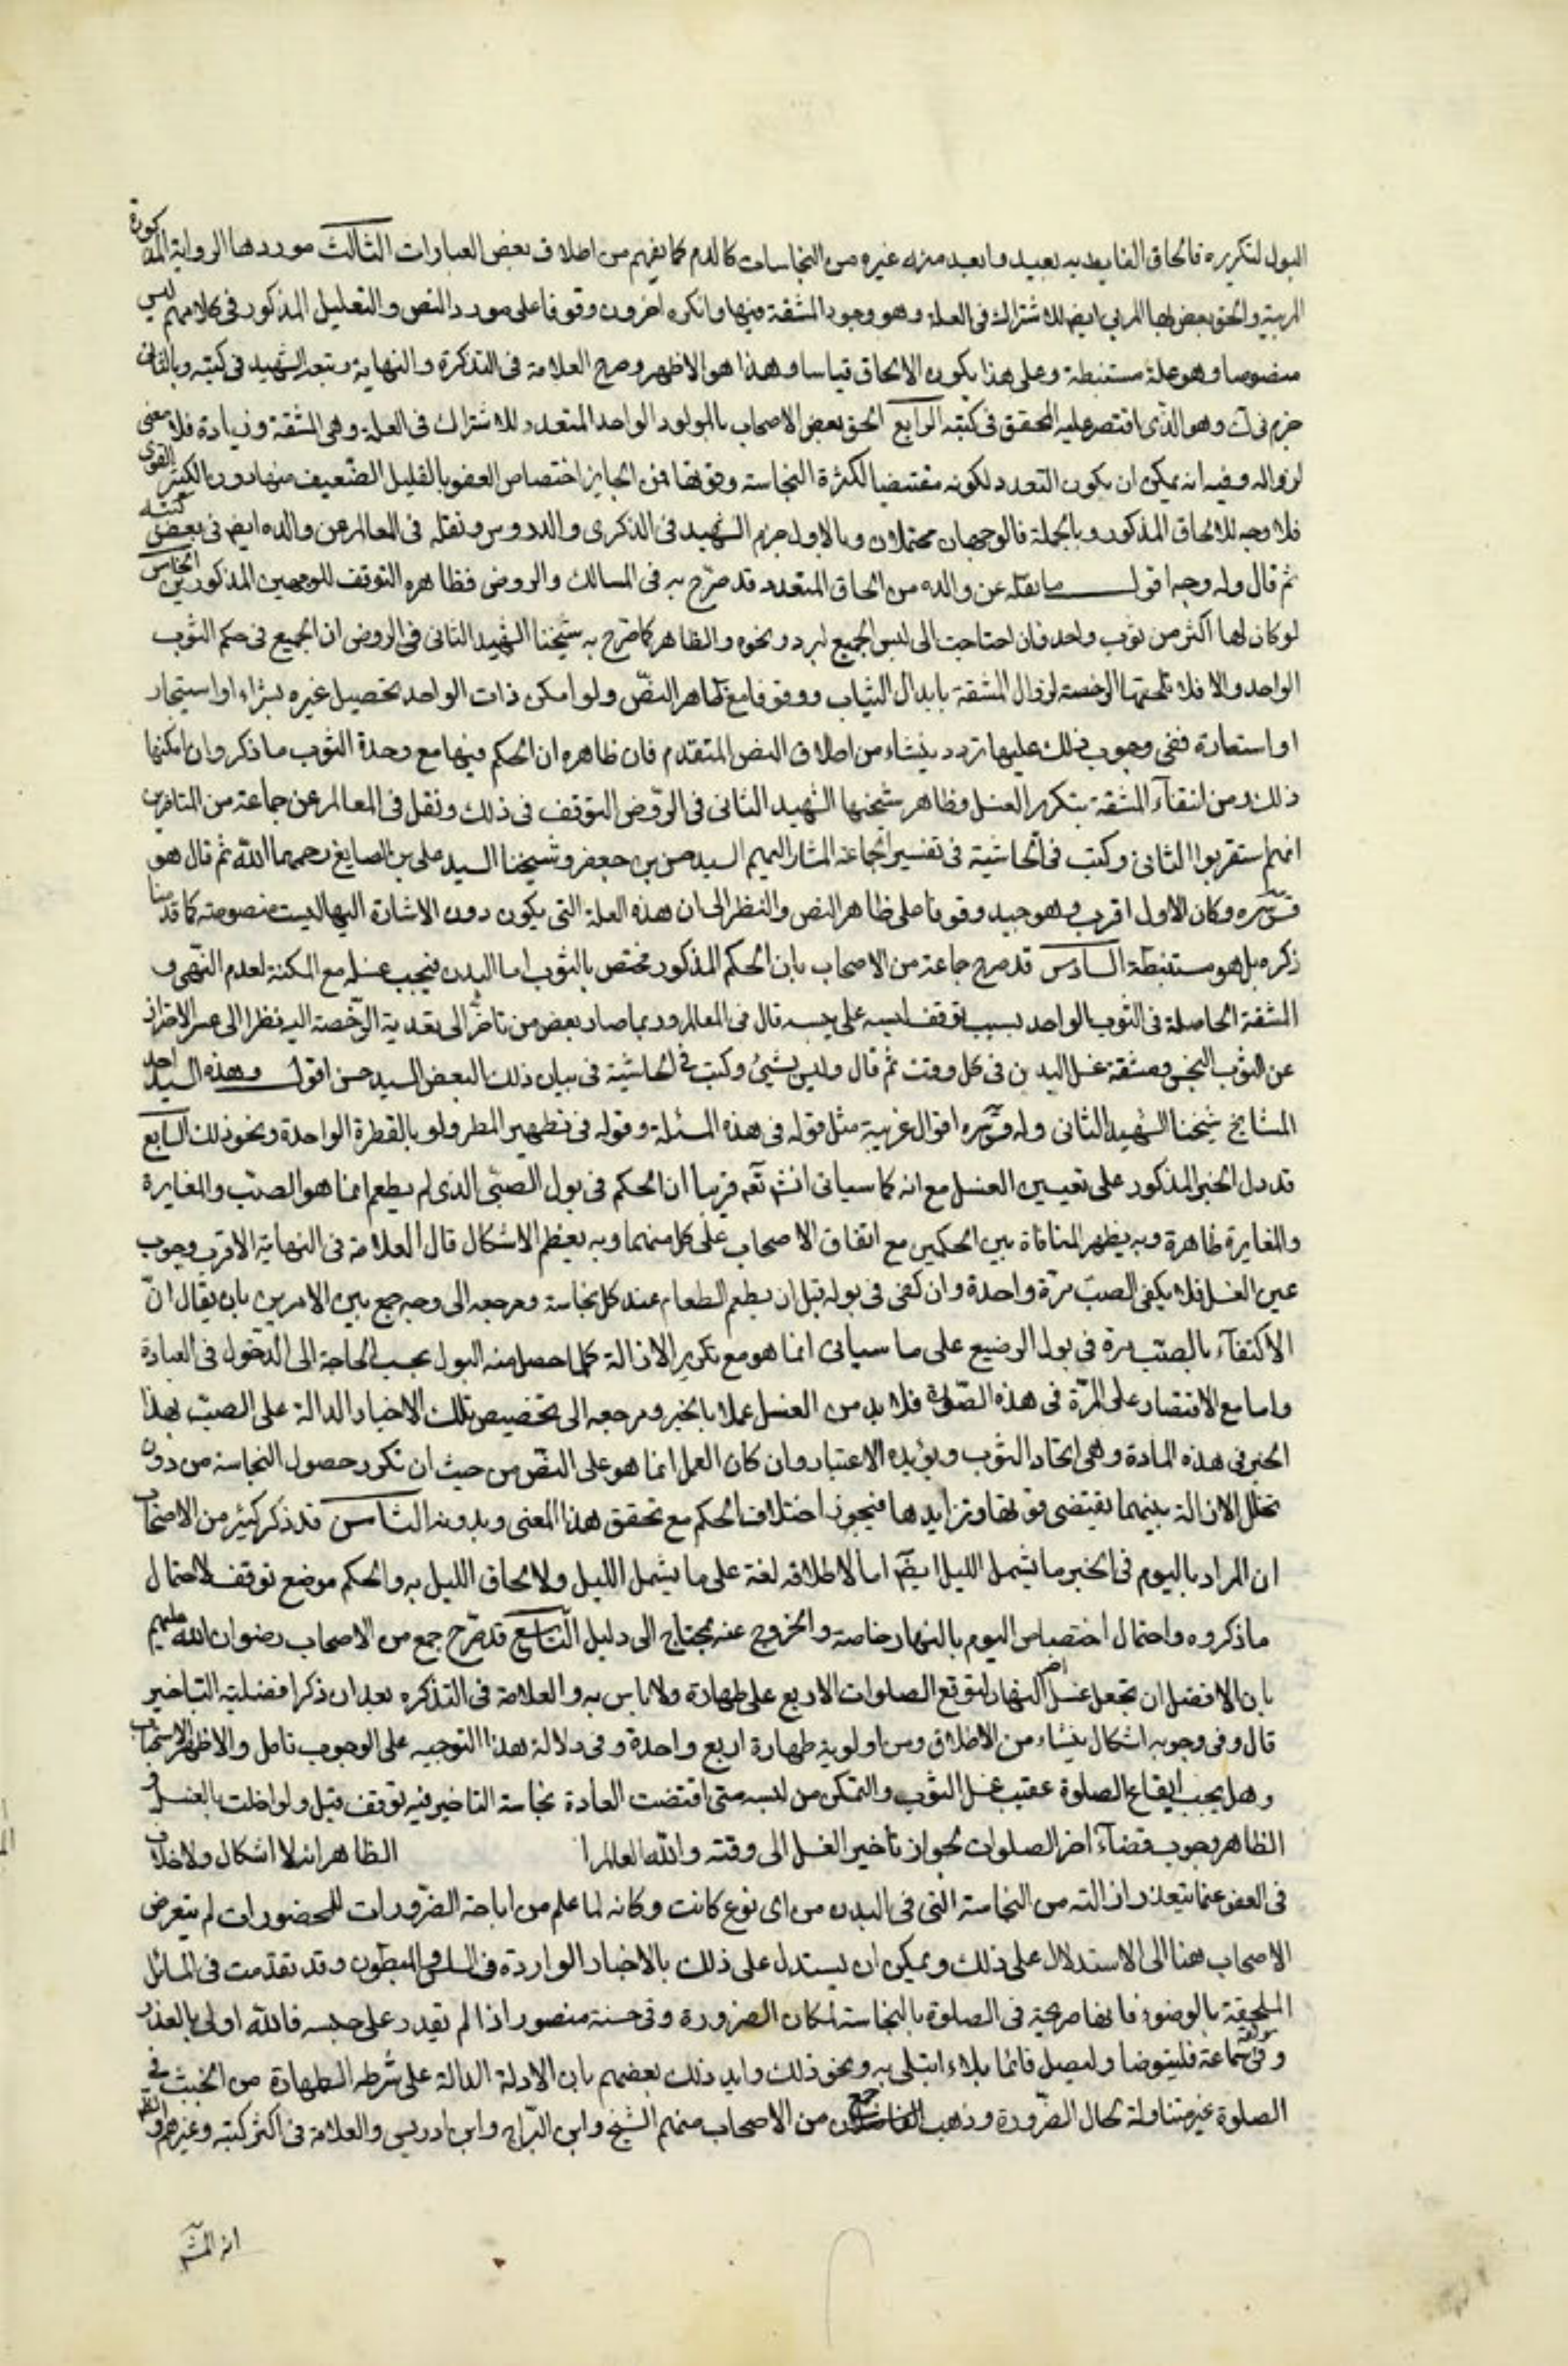 البول لتكرره فالحاق الغايط به بعيد وابعد منه غيره من النجاسات كالدم كما يفهم من اطلاق بعض العبارات الثالث مورد هذا الرواية المذكورة
المربية والحق بعض بها المربي ايض للاشتراك في العلة وهو وجود المشقة فيها وانكره اخرون وقوفا على مورد النص والتعليل المذكور في كلامهم ليس
منصوصا وهو علة مستنبطة وعلى هذا يكون الالحاق قياسا وهذا هو الاظهر وصرح العلامة في التذكرة والنهاية وتبعه الشهيد في كتبه وبالثاني
جزم في ك وهو الذي اقتصر عليه المحقق في كتبه الرابع الحق بعض الاصحاب بالمولود الواحد المتعدد للاشتراك في العلة وهي المشقة وزيادة فلا معنى
لزواله وفيه انه يمكن ان يكون التعدد لكونه مقتضيا لكثرة النجاسة وقوتها فمن الجايز اختصاص العفو بالقليل الضعيف منها دون الكثير القوي
فلا وجه للالحاق المذكور وبالجملة فالوجهان محتملان وبالاول جزم الشهيد في الذكرى والدروس ونقله في المعالم عن والده ايض في بعض كتبه
ثم قال وله وجه اقول ما نقله عن والده من الحاق المتعدد قد صرح به في المسالك والروض فظاهره التوقف للوجهين المذكورين الخامس
لو كان لها اكثر من ثوب واحد فان احتاجت الى لبس الجميع لبرد ونحوه والظاهر كما صرح به شيخنا الشهيد الثاني في الروض ان الجميع في حكم الثوب
الواحد والا فلا تلحقها الرخصة لزوال المشقة بابدال الثياب ووقوفا مع ظاهر النص ولو امكن ذات الواحد تحصيل غيره بشراء او استيجار
او استعارة ففي وجوب ذلك عليها تردد ينشاء من اطلاق النص المتقدم فان ظاهره ان الحكم فيها مع وحدة الثوب ما ذكر وان امكنها
ذلك ومن انتفآء المشقة بتكرر الغسل وظاهر شيخنا الشهيد الثاني في الروض التوقف في ذلك ونقل في المعالم عن جماعة من المتاخرين
انهم استقربوا الثاني وكتب في الحاشية في تفسير الجماعة المشار اليهم السيد حسن بن جعفر وشيخنا السيد علي بن الصايغ رحمهما الله ثم قال هو
قدس سره وكان الاول اقرب وهو جيد وقوفا على ظاهر النص والنظر الى ان هذه العلة التي يكون دون الاشارة اليها ليست منصوصة كما قدمنا
ذكره بل هو مستنبطة السادس قد صرح جماعة من الاصحاب بان الحكم المذكور مختص بالثوب اما البدن فيجب غسله مع المكنة لعدم النص و
المشقة الحاصلة في الثوب الواحد بسبب توقف لبسه على يبسه قال في المعالم وربما صار بعض من تاخر الى تعدية الرخصة اليه نظرا الى عسر الاحتراز
عن الثوب النجس ومشقة غسل البدن في كل وقت ثم قال وليس بشيئ وكتب في الحاشية في بيان ذلك البعض السيد حسن اقول وهذه السيد احد
المشايخ شيخنا الشهيد الثاني وله قدس سره اقوال غريبة مثل قوله في هذه المسئلة وقوله في تطهير المطر ولو بالقطرة الواحدة ونحو ذلك السابع
قد دل الخبر المذكور على تعيين الغسل مع انه كما سياتي انش تعه قريبا ان الحكم في بول الصبي الذي لم يطعم انما هو الصب والمغايرة
والمغايرة ظاهرة وبه يظهر المنافاة بين الحكمين مع اتفاق الاصحاب على كل منهما وبه يعظم الاشكال قال العلامة في النهاية الاقرب وجوب
عين الغسل فلا يكفي الصب مرة واحدة وان كفى في بوله قبل ان يطعم الطعام عند كل نجاسة ومرجعه الى وجه جمع بين الامرين بان يقال انّ
الاكتفآء بالصب مرة في بول الرضيع على ما سياتي انما هو مع تكرير الازالة كلما حصل منه البول بحسب الحاجة الى الدخول في العبادة
واما مع الاقتصار على المرّة في هذه الصورة فلا بد من الغسل عملا بالخبر ومرجعه الى تخصيص تلك الاخبار الدالة على الصب بهذا
الخبر في هذه المادة وهي اتحاد الثوب ويؤيده الاعتبار وان كان العمل انما هو على النص من حيث ان تكرر حصول النجاسة من دون
تخلل الازالة بينهما يقتضي قوتها وتزايدها فيجوز اختلاف الحكم مع تحقق هذا المعنى وبدونه الثامن قد ذكر كثير من الاصحاب
ان المراد باليوم في الخبر ما يشمل الليل ايضآ اما لاطلاقه لغة على ما يشمل الليل ولالحاق الليل به والحكم موضع توقف لاحتمال
ما ذكروه واحتمال اختصاص اليوم بالنهار خاصة والخروج عنه يحتاج الى دليل التاسع قد صرح جمع من الاصحاب رضوان الله عليهم
بان الافضل ان تجعل غسل اخر النهار لتوقع الصلوات الاربع على طهارة ولا باس به والعلامة في التذكره بعد ان ذكر افضلية التاخير
قال وفي وجوبه اشكال ينشاء من الاطلاق ومن اولوية طهارة اربع واحدة وفي دلالة هذا التوجيه على الوجوب تامل والاظهر الاستحباب
وهل يجب ايقاع الصلوة عقيب غسل الثوب والتمكن من لبسه متى اقتضت العادة نجاسة التاخير فيه توقف قيل ولو اخلت بالغسل و
الظاهر وجوب قضآء اخر الصلوات لجواز تأخير الغسل الى وقته والله العالم ا الظاهر انه لا اشكال ولا خلاف
في العفو عما يتعذر ازالته من النجاسة التي في البدن من اى نوع كانت وكانه لما علم من اباحة الضرورات للمحضورات لم يتعرض
الاصحاب هنا الى الاستدلال على ذلك ويمكن ان يستدل على ذلك بالاخبار الواردة في السلس والمبطون وقد تقدمت في المسائل
الملحقة بالوضوء فانها صريحة في الصلوة بالنجاسة لمكان الضرورة وفي حسنة منصور اذا لم يقدر على حبسه فالله اولى بالعذر
وفي موثقة سماعة فليتوضا وليصل فانما بلاء ابتلى به ونحو ذلك وايد ذلك بعضهم بان الادلة الدالة على شرطه الطهارة من الخبث في
الصلوة غير متناولة لحال الضرورة وذهب جمع من الاصحاب منهم الشيخ وابن البراج وابن ادريس والعلامة في اكثر كتبه وغيرهم
انه المش